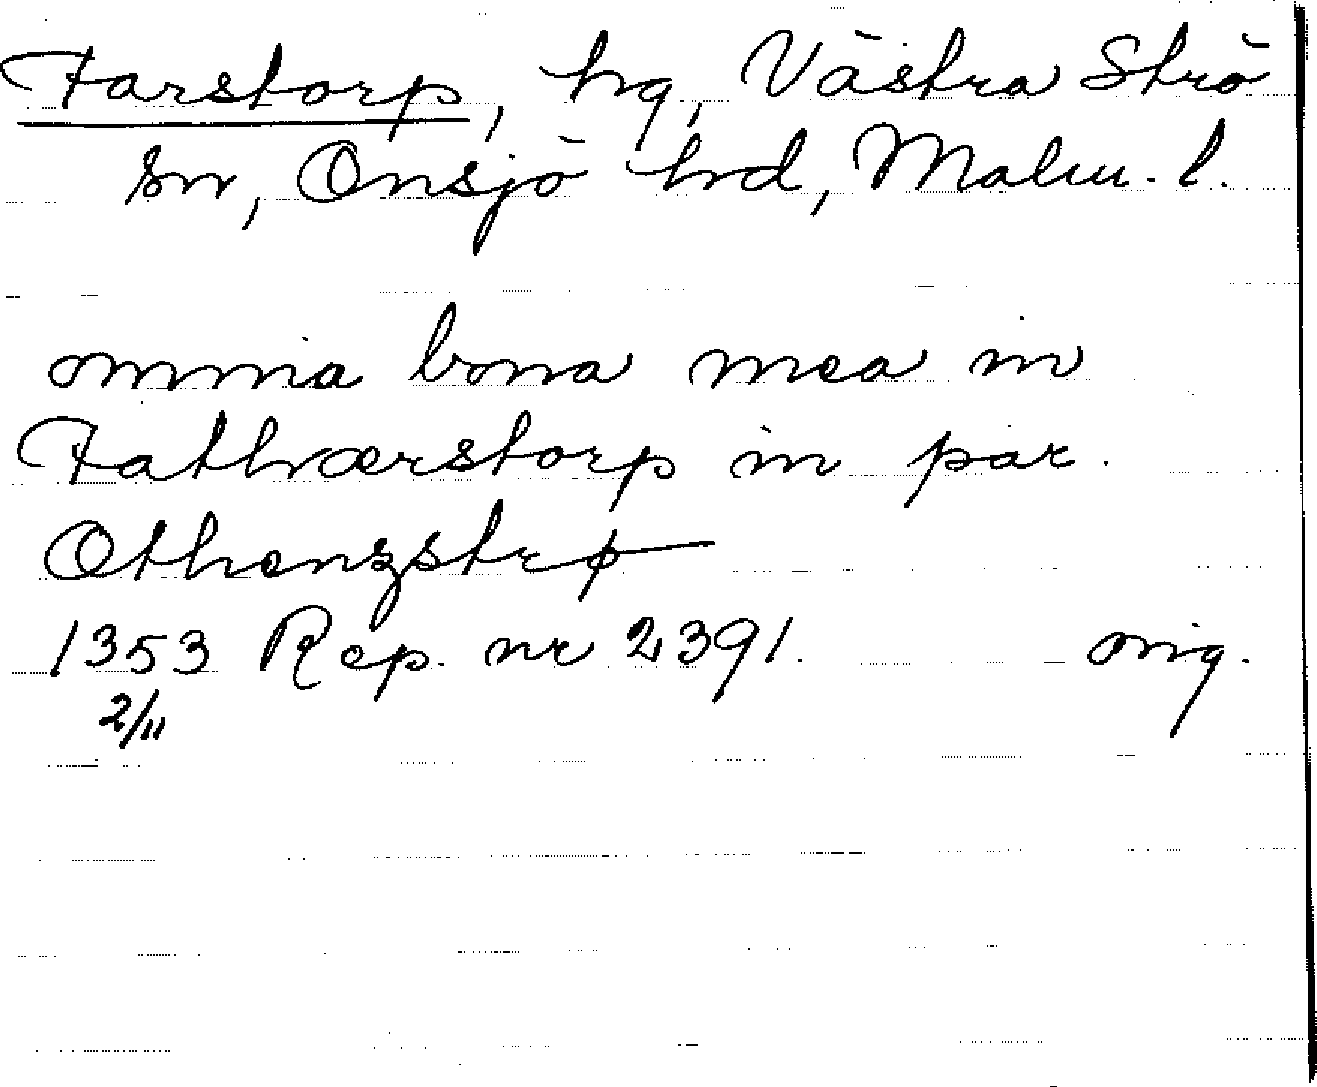 Farstorp, hg, Västra Strö
sn, Onsjö hrd, Malm. l.
omnia bona mea in
Fathærstorp in par.
Othenzstrø
1353 Rep. nr 2391. orig.
2/11